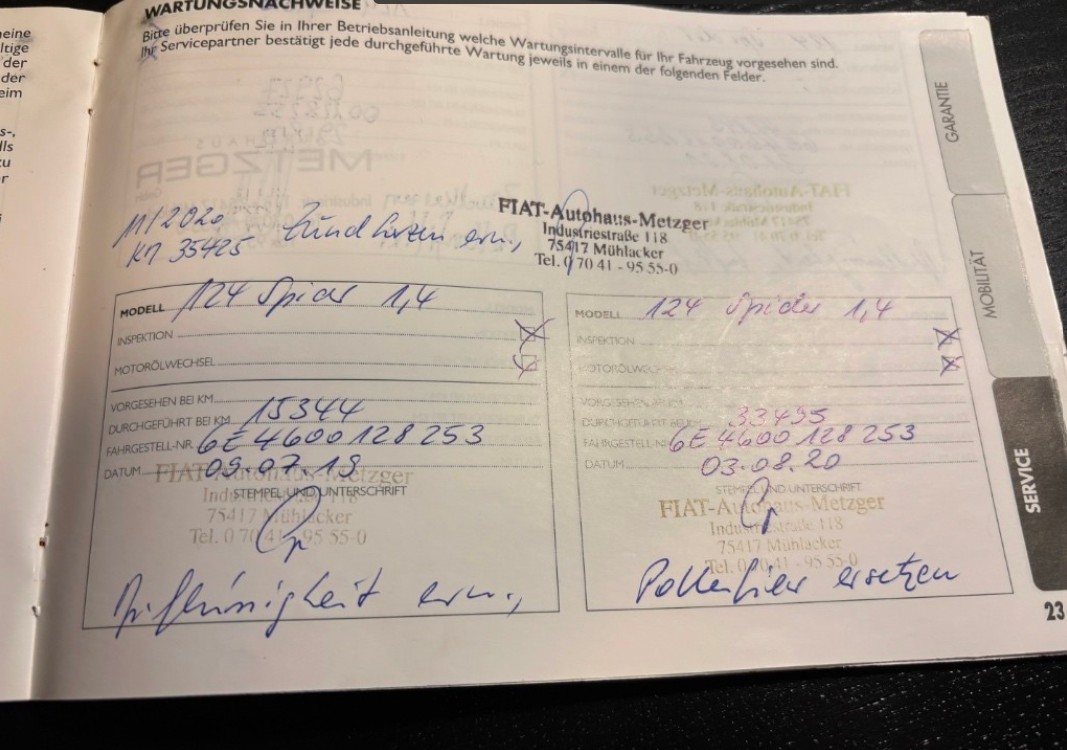 eine
ltige
der
der
eim
s-,
lls
zu
r
WARTUNGSNACHWEISE
Bitte überprüfen Sie in Ihrer Betriebsanleitung welche Wartungsintervalle für Ihr Fahrzeug vorgesehen sind.
Ihr Servicepartner bestätigt jede durchgeführte Wartung jeweils in einem der folgenden Felder.
11/2020
KM 35425
Zündkerzen ern.,
FIAT-Autohaus-Metzger
Industriestraße 118
75417 Mühlacker
Tel. 0 70 41 - 95 55-0
MODELL 124 Spider 1,4
INSPEKTION
MOTORÖLWECHSEL
VORGESEHEN BEI KM
DURCHGEFÜHRT BEI KM 15344
FAHRGESTELL-NR. 6E4600128253
DATUM 09.07.19
STEMPEL UND UNTERSCHRIFT
FIAT-Autohaus-Metzger
Industriestraße 118
75417 Mühlacker
Tel. 0 70 41 - 95 55-0
ern.,
MODELL 124 Spider 1,4
INSPEKTION
MOTORÖLWECHSEL
VORGESEHEN BEI KM
DURCHGEFÜHRT BEI KM 33495
FAHRGESTELL-NR. 6E4600128253
DATUM 03.08.20
STEMPEL UND UNTERSCHRIFT
FIAT-Autohaus-Metzger
Industriestraße 118
75417 Mühlacker
Tel. 0 70 41 - 95 55-0
ersetzen
GARANTIE
MOBILITÄT
SERVICE
23